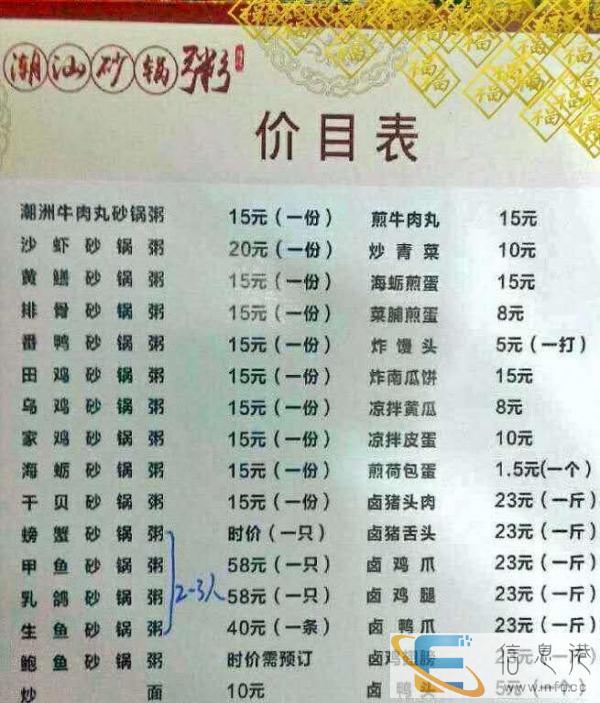 潮汕砂锅粥
价目表
潮洲牛肉丸砂锅粥 15元(一份) 煎牛肉丸 15元
沙虾砂锅粥 20元(一份) 炒青菜 10元
黄鳝砂锅粥 15元(一份) 海蛎煎蛋 15元
排骨砂锅粥 15元(一份) 菜脯煎蛋 8元
番鸭砂锅粥 15元(一份) 炸馒头 5元(一打)
田鸡砂锅粥 15元(一份) 炸南瓜饼 15元
乌鸡砂锅粥 15元(一份) 凉拌黄瓜 8元
家鸡砂锅粥 15元(一份) 凉拌皮蛋 10元
海蛎砂锅粥 15元(一份) 煎荷包蛋 1.5元(一个)
干贝砂锅粥 15元(一份) 卤猪头肉 23元(一斤)
螃蟹砂锅粥 时价(一只) 卤猪舌头 23元(一斤)
甲鱼砂锅粥 58元(一只) 卤鸡爪 23元(一斤)
乳鸽砂锅粥 2-3人 58元(一只) 卤鸡腿 23元(一斤)
生鱼砂锅粥 40元(一条) 卤鸭爪 23元(一斤)
鲍鱼砂锅粥 时价需预订 卤鸡翅膀 23元(一斤)
炒面 10元 卤鸭头 5元(一个)
信息港
www.infq.cc